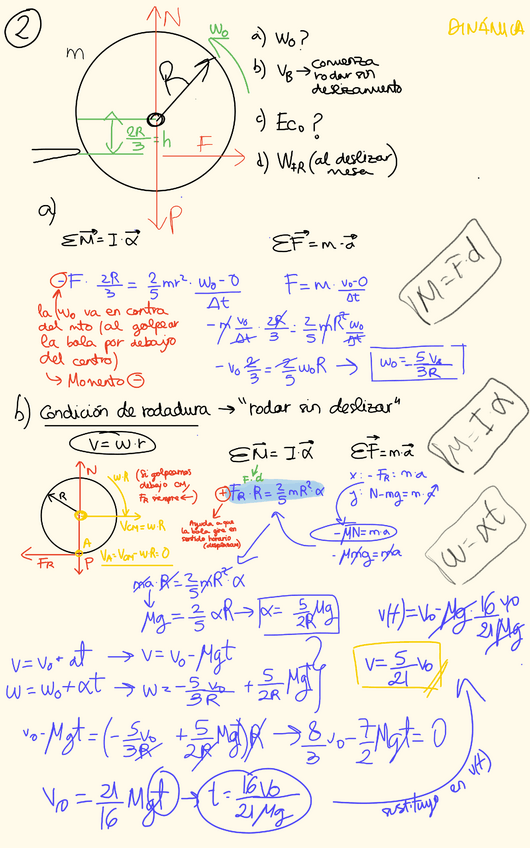 ②
DINÁMICA
N
w₀
m
R
2R/3 = h
F
P
a) w₀?
b) V_B → comienza
rodar sin
deslizamiento
c) Ec₀?
d) W_FR (al deslizar)
mesa
a)
ΣM⃗ = I·α⃗
ΣF⃗ = m·a⃗
M = F·d
⊖F · 2R/3 = 2/5 mr² · (w₀-0)/Δt
F = m · (v₀-0)/Δt
la w₀ va en contra
del mto (al golpear
la bola por debajo
del centro)
↳ Momento ⊖
- m v₀/Δt · 2R/3 = 2/5 mR² w₀/Δt
- v₀ 2/3 = 2/5 w₀R → w₀ = -5v₀/3R
b) Condición de rodadura → "rodar sin deslizar"
v = w·r
ΣM⃗ = I·α⃗
ΣF⃗ = m·a⃗
M = I α
N
w·R
(Si golpeamos
debajo CM,
FR siempre ←)
R
V_CM = wR
A
F_R
P
V_A = V_CM - wR = 0
F·d
⊕ F_R · R = 2/5 mR² α
Ayuda a que
la bola gire en
sentido horario
x: - F_R = m·a
y: N-mg = m·a
-μN = m·a
-μmg = ma
w = αt
ma·R = 2/5 mR²·α
μg = 2/5 αR → α = 5/2R μg
v(t) = v₀ - μg · 16v₀/21μg
v = v₀ + at → v = v₀ - μgt
w = w₀ + αt → w = -5v₀/3R + 5/2R μgt
v = 5/21 v₀
v₀ - μgt = (-5v₀/3R + 5/2R μgt)R → 8/3 v₀ - 7/2 μgt = 0
v₀ = 21/16 μgt → t = 16v₀/21μg
sustituyo en v(t)